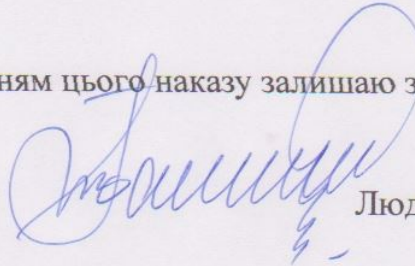 ням цього наказу залишаю з
Люд